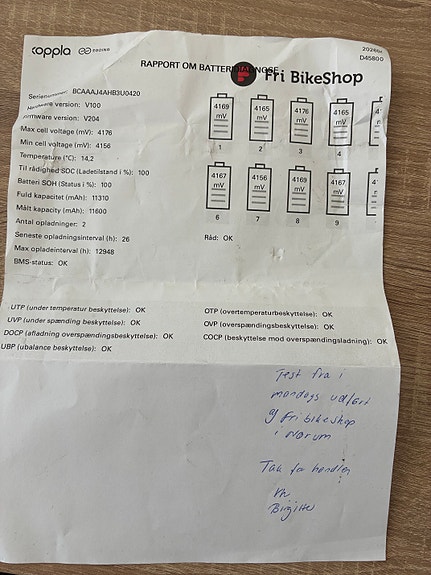 coppla
RAPPORT OM BATTERIDIAGNOSE
Fri BikeShop
D45800
Serienummer: BCAAAJ4AHB3U0420
Hardware version: V100
Firmware version: V204
Max cell voltage (mV): 4176
Min cell voltage (mV): 4156
Temperature (°C): 14,2
Til rådighed SOC (Ladetilstand i %): 100
Batteri SOH (Status i %): 100
Fuld kapacitet (mAh): 11310
Målt kapacity (mAh): 11600
Antal opladninger: 2
Seneste opladningsinterval (h): 26
Max opladeinterval (h): 12948
BMS-status: OK
4169 mV
4165 mV
4176 mV
4165 mV
1 2 3 4
4167 mV
4156 mV
4169 mV
4167 mV
6 7 8 9
Råd: OK
UTP (under temperatur beskyttelse): OK
UVP (under spænding beskyttelse): OK
DOCP (afladning overspændingsbeskyttelse): OK
UBP (ubalance beskyttelse): OK
OTP (overtemperaturbeskyttelse): OK
OVP (overspændingsbeskyttelse): OK
COCP (beskyttelse mod overspændingsladning): OK
Test fra i
mandags udført
af Fri bikeshop
i Nørum
Tak for handlen
Vh
Birgitte